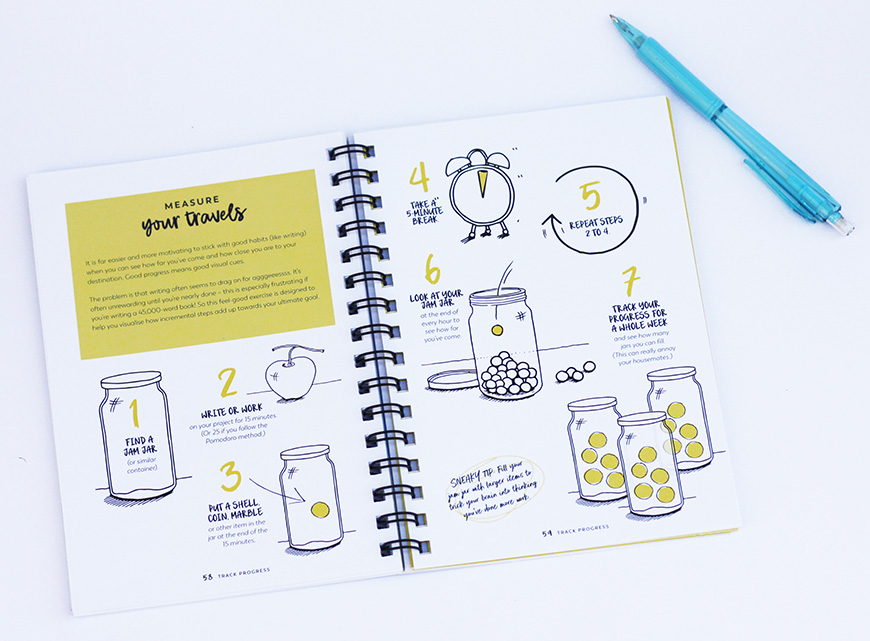 MEASURE
your travels
It is far easier and more motivating to stick with good habits (like writing)
when you can see how far you've come and how close you are to your
destination. Good progress means good visual cues.
The problem is that writing often seems to drag on for agggreessss. It's
often unrewarding until you're nearly done – this is especially frustrating if
you're writing a 45,000-word book! So this feel-good exercise is designed to
help you visualise how incremental steps add up towards your ultimate goal.
1
FIND A
JAM JAR
(or similar
container)
2
WRITE OR WORK
on your project for 15 minutes.
(Or 25 if you follow the
Pomodoro method.)
3
PUT A SHELL
COIN MARBLE
or other item in the
jar at the end of the
15 minutes.
58 TRACK PROGRESS
4
TAKE A
5-MINUTE
BREAK
5
REPEAT STEPS
2 TO 4
6
LOOK AT YOUR
JAM JAR
at the end of
every hour to
see how far
you've come
7
TRACK YOUR
PROGRESS FOR
A WHOLE WEEK
and see how many
jars you can fill
(This can really annoy
your housemates.)
SNEAKY TIP: Fill your
jam jar with larger items to
trick your brain into thinking
you've done more work.
59 TRACK PROGRESS